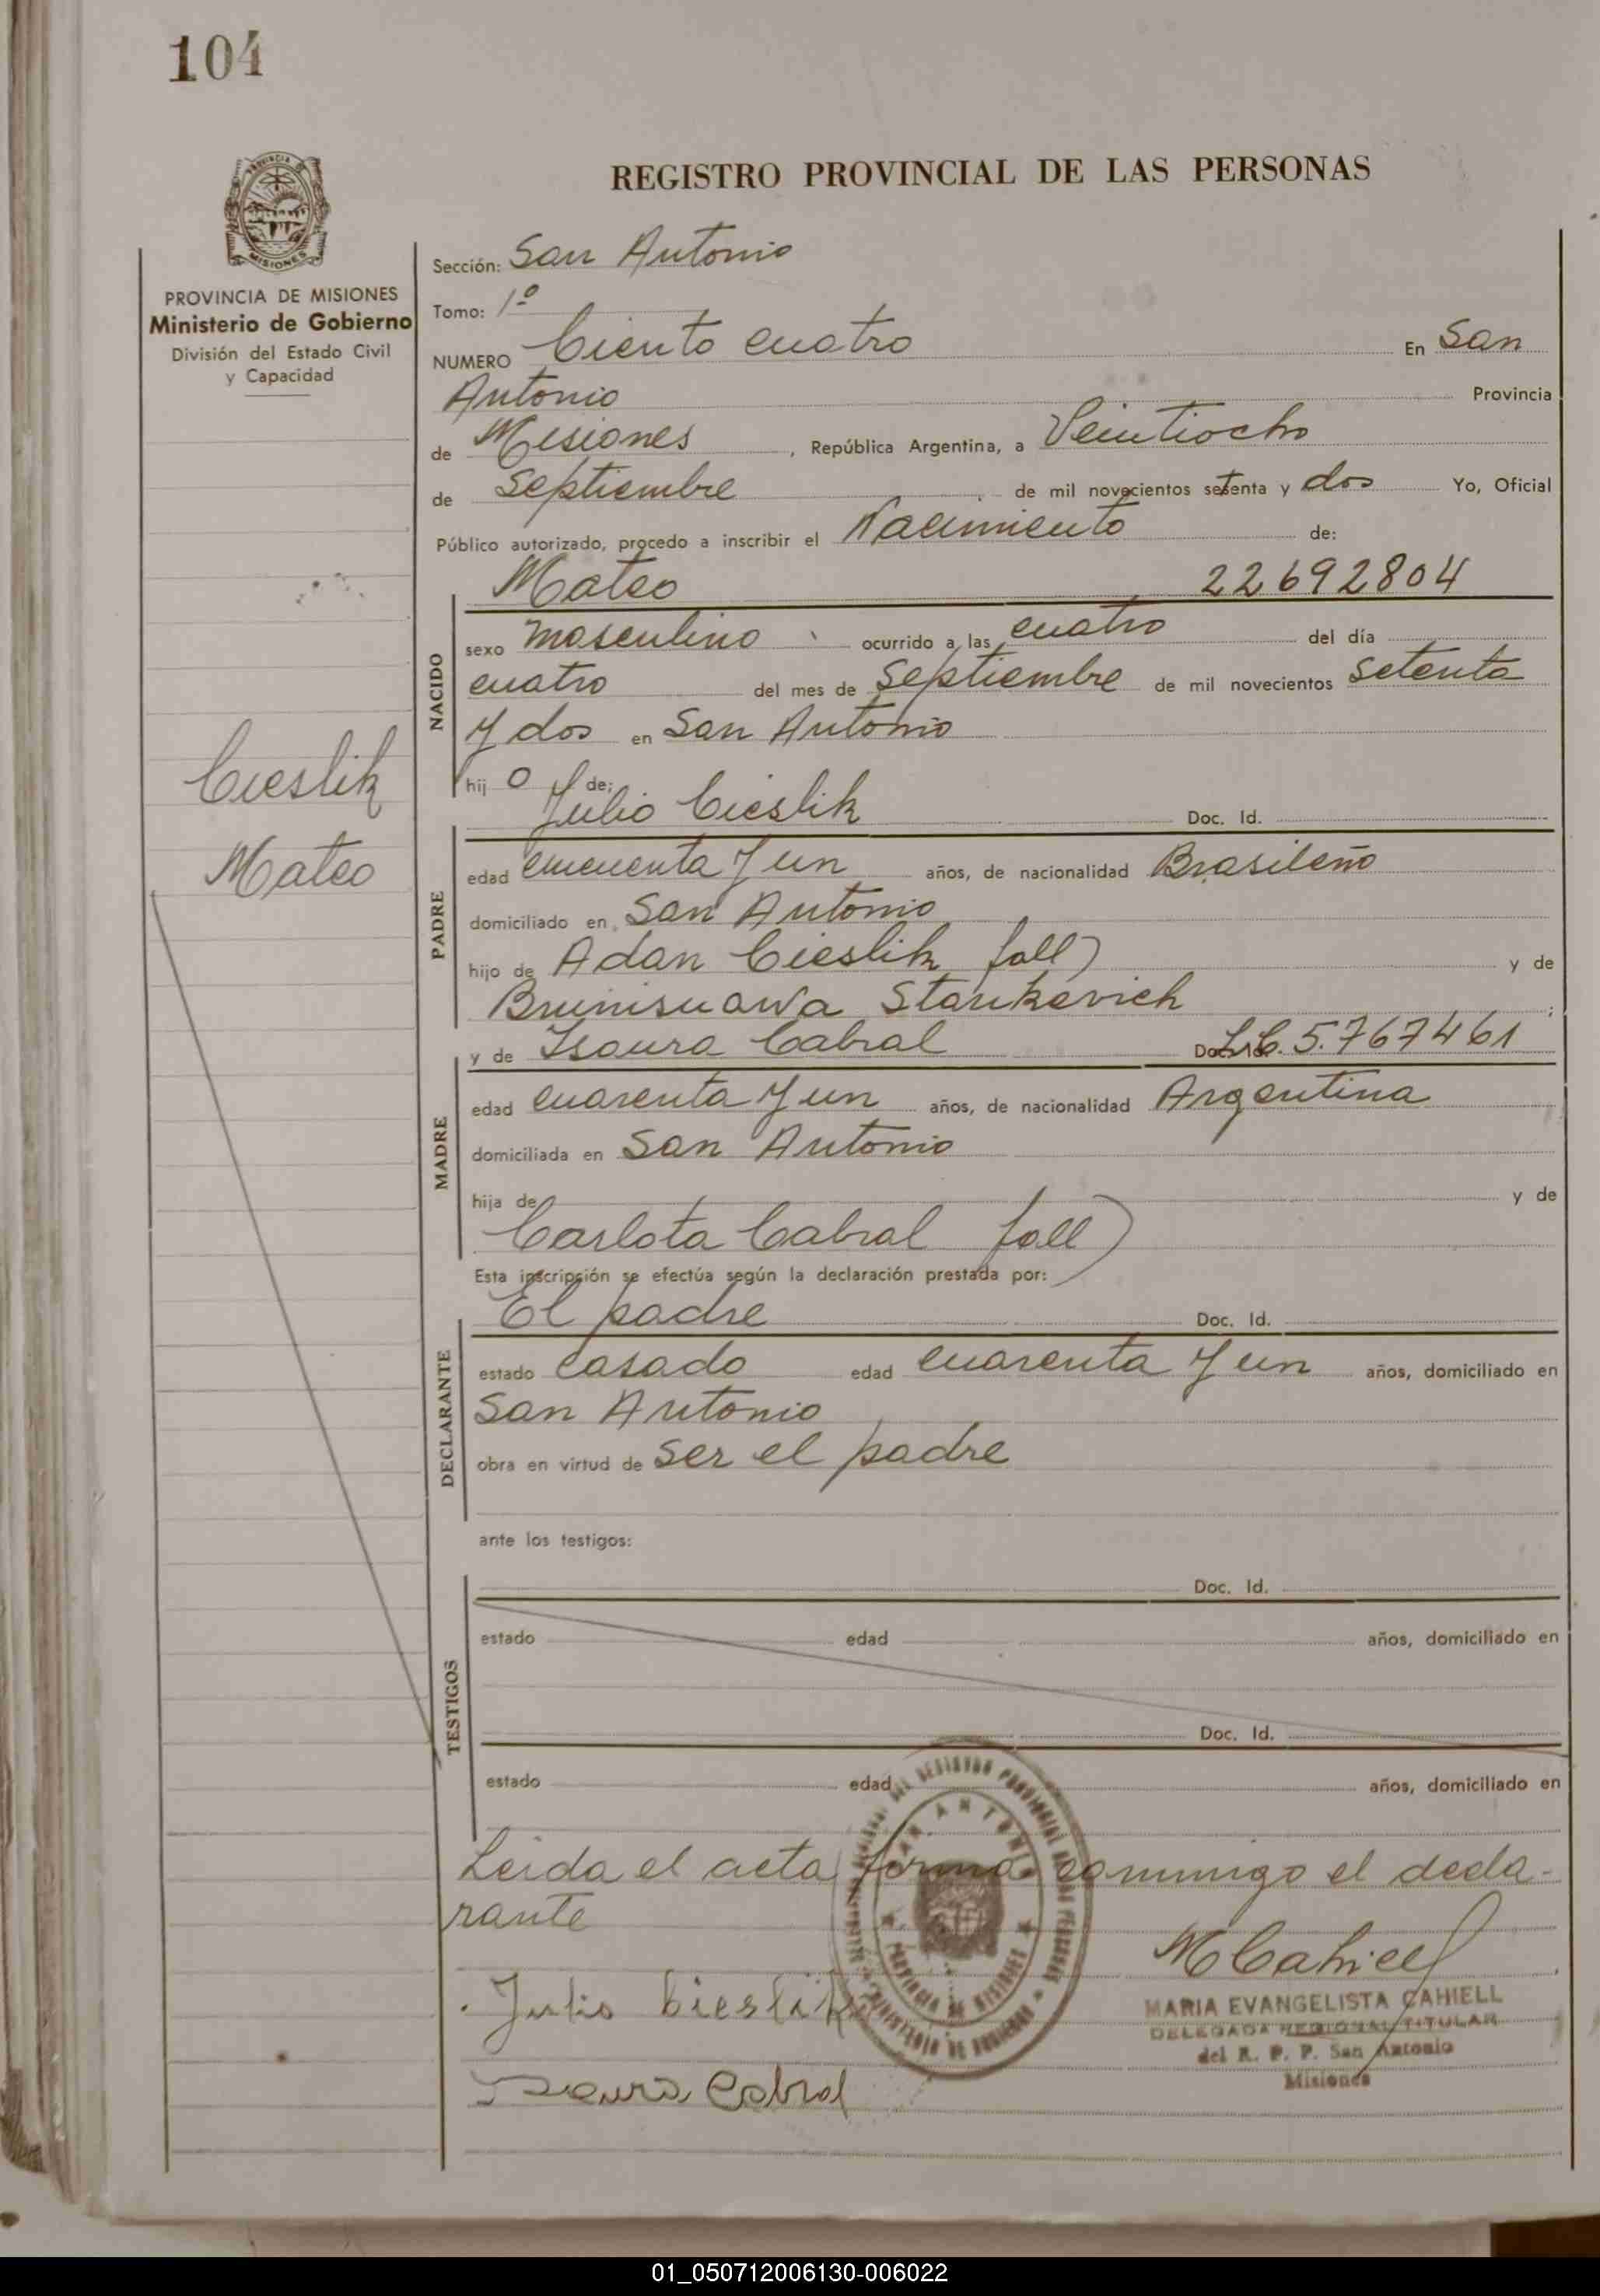 104
REGISTRO PROVINCIAL DE LAS PERSONAS
MISIONES
PROVINCIA DE MISIONES
Ministerio de Gobierno
División del Estado Civil
y Capacidad
Sección: San Antonio
Tomo: 1º
NUMERO Ciento cuatro En San
Antonio Provincia
de Misiones, República Argentina, a Veintiocho
de Septiembre de mil novecientos setenta y dos Yo, Oficial
Público autorizado, procedo a inscribir el Nacimiento de:
Mateo 22692804
NACIDO
sexo masculino ocurrido a las cuatro del día
cuatro del mes de Septiembre de mil novecientos setenta
y dos en San Antonio
hij o de:
Cieslik
Mateo
Julio Cieslik Doc. Id.
PADRE
edad cincuenta y un años, de nacionalidad Brasileño
domiciliado en San Antonio
hijo de Adan Cieslik fall) y de
Stankevich;
y de Isaura Cabral Doc. Id. L.C. 5.767461
MADRE
edad cuarenta y un años, de nacionalidad Argentina
domiciliada en San Antonio
hija de y de
Carlota Cabral fall)
Esta inscripción se efectúa según la declaración prestada por:
El padre Doc. Id.
DECLARANTE
estado casado edad cuarenta y un años, domiciliado en
San Antonio
obra en virtud de ser el padre
ante los testigos:
Doc. Id.
TESTIGOS
estado edad años, domiciliado en
Doc. Id.
estado edad años, domiciliado en
Leida el acta firma conmigo el decla-
rante
SAN ANTONIO
PROVINCIA DE MISIONES
MCahiell
Julio Cieslik
MARIA EVANGELISTA CAHIELL
DELEGADA REGIONAL TITULAR
del R. P. P. San Antonio
Misiones
Isaura Cabral
01_050712006130-006022